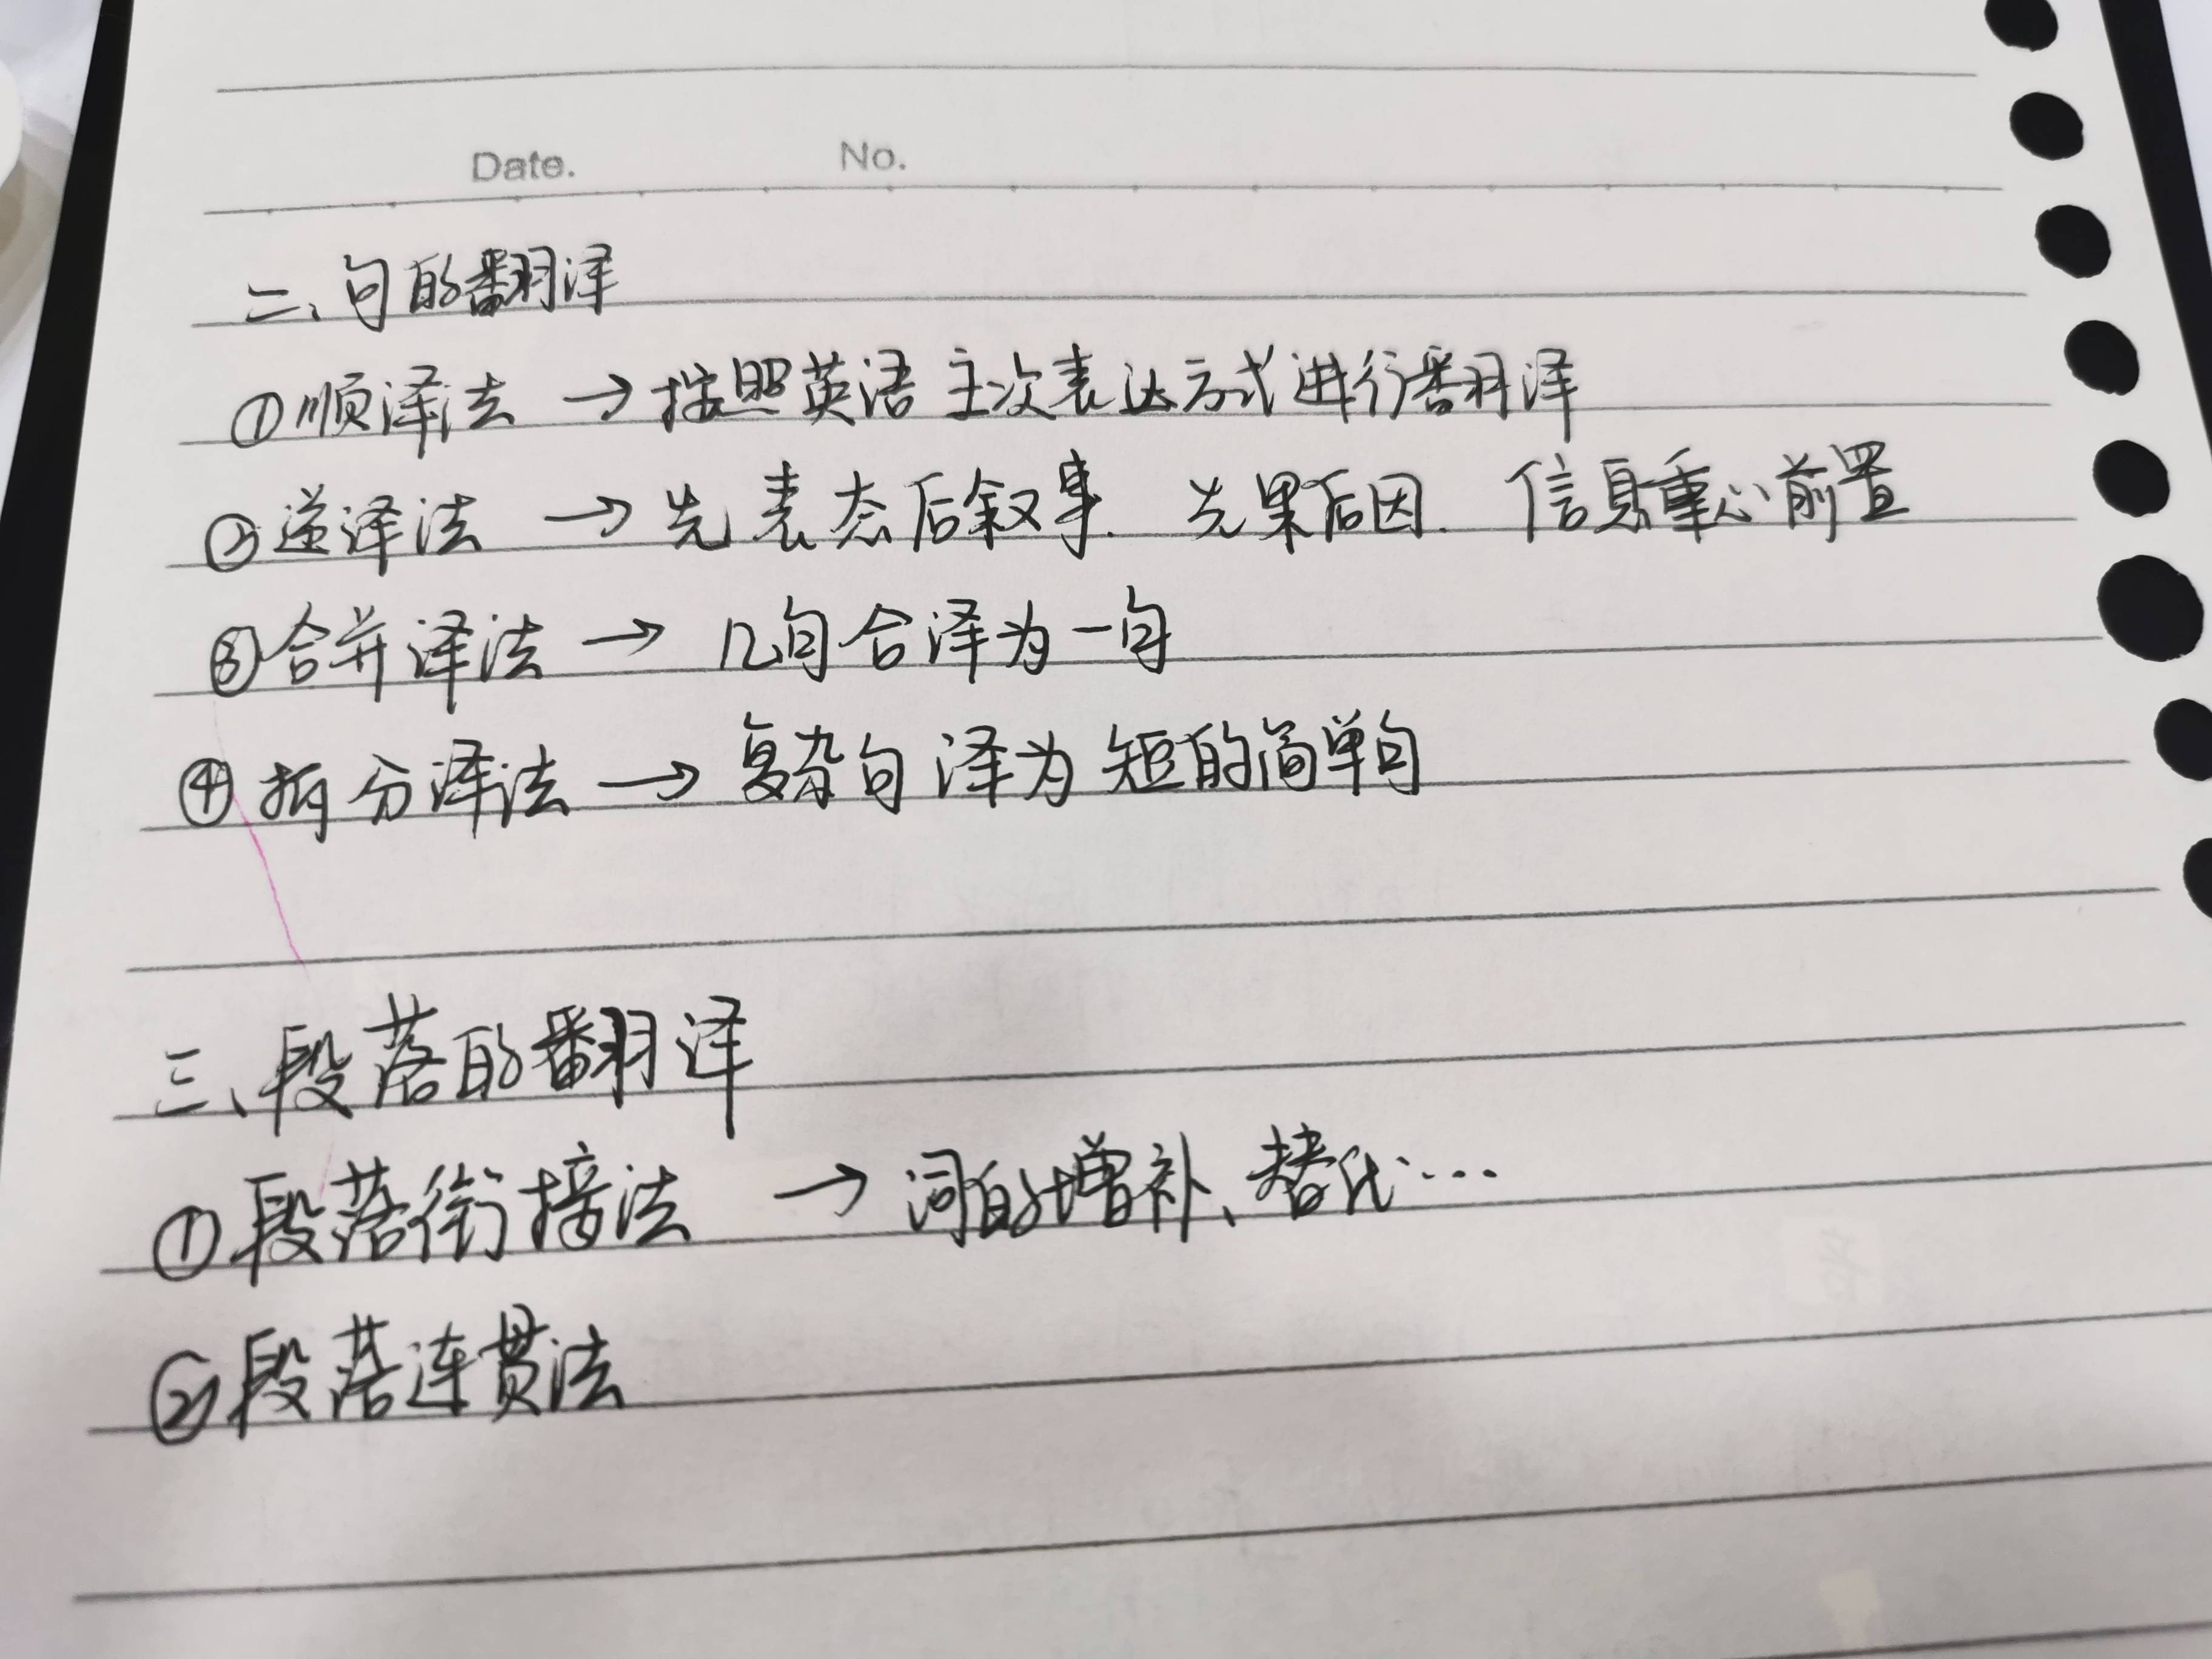 Date. No.
二、句的翻译
①顺译法 → 按照英语主次表达方式进行翻译
②逆译法 → 先表态后叙事. 先果后因. 信息重心前置
③合并译法 → 几句合译为一句
④拆分译法 → 复杂句译为短的简单句
三、段落的翻译
①段落衔接法 → 词的增补、替代……
②段落连贯法